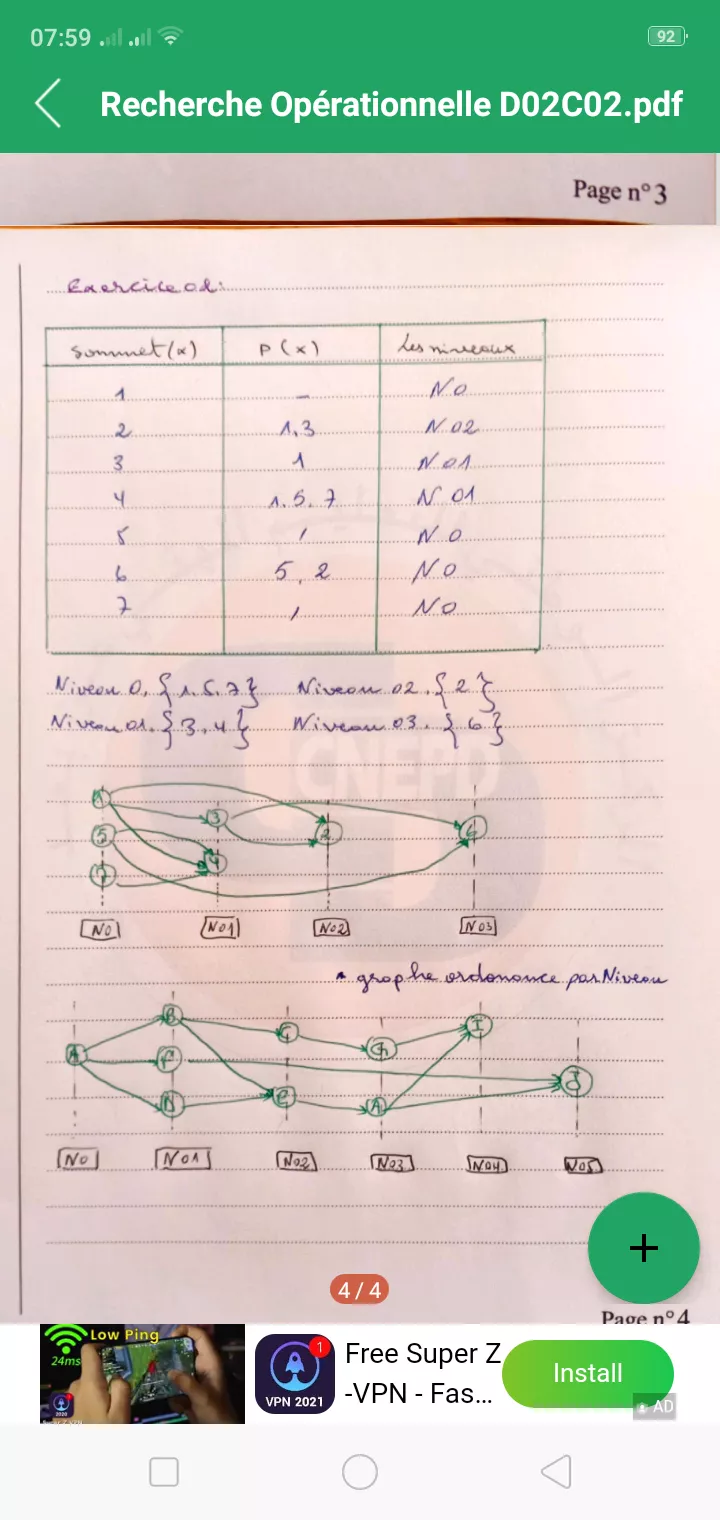 07:59
92
Recherche Opérationnelle D02C02.pdf
Page n°3
Exercice 01:
Sommet(x) P(x) Les niveaux
1 – N0
2 1,3 N02
3 1 N01
4 1.5.7 N01
5 / N0
6 5,2 N0
7 / N0
Niveau 0, {1.5.7} Niveau 02.{2}
Niveau 01.{3,4} Niveau 03.{6}
CNEPD
1 3 2 6
5 4
7
N0 N01 N02 N03
* graphe ordonance par Niveau
B C G I
A F J
D E A
N0 N01 N02 N03 N04 N05
4 / 4
Page n°4
Low Ping
24ms
2020
Super Z VPN
1
VPN 2021
Free Super Z
-VPN - Fas...
Install
AD